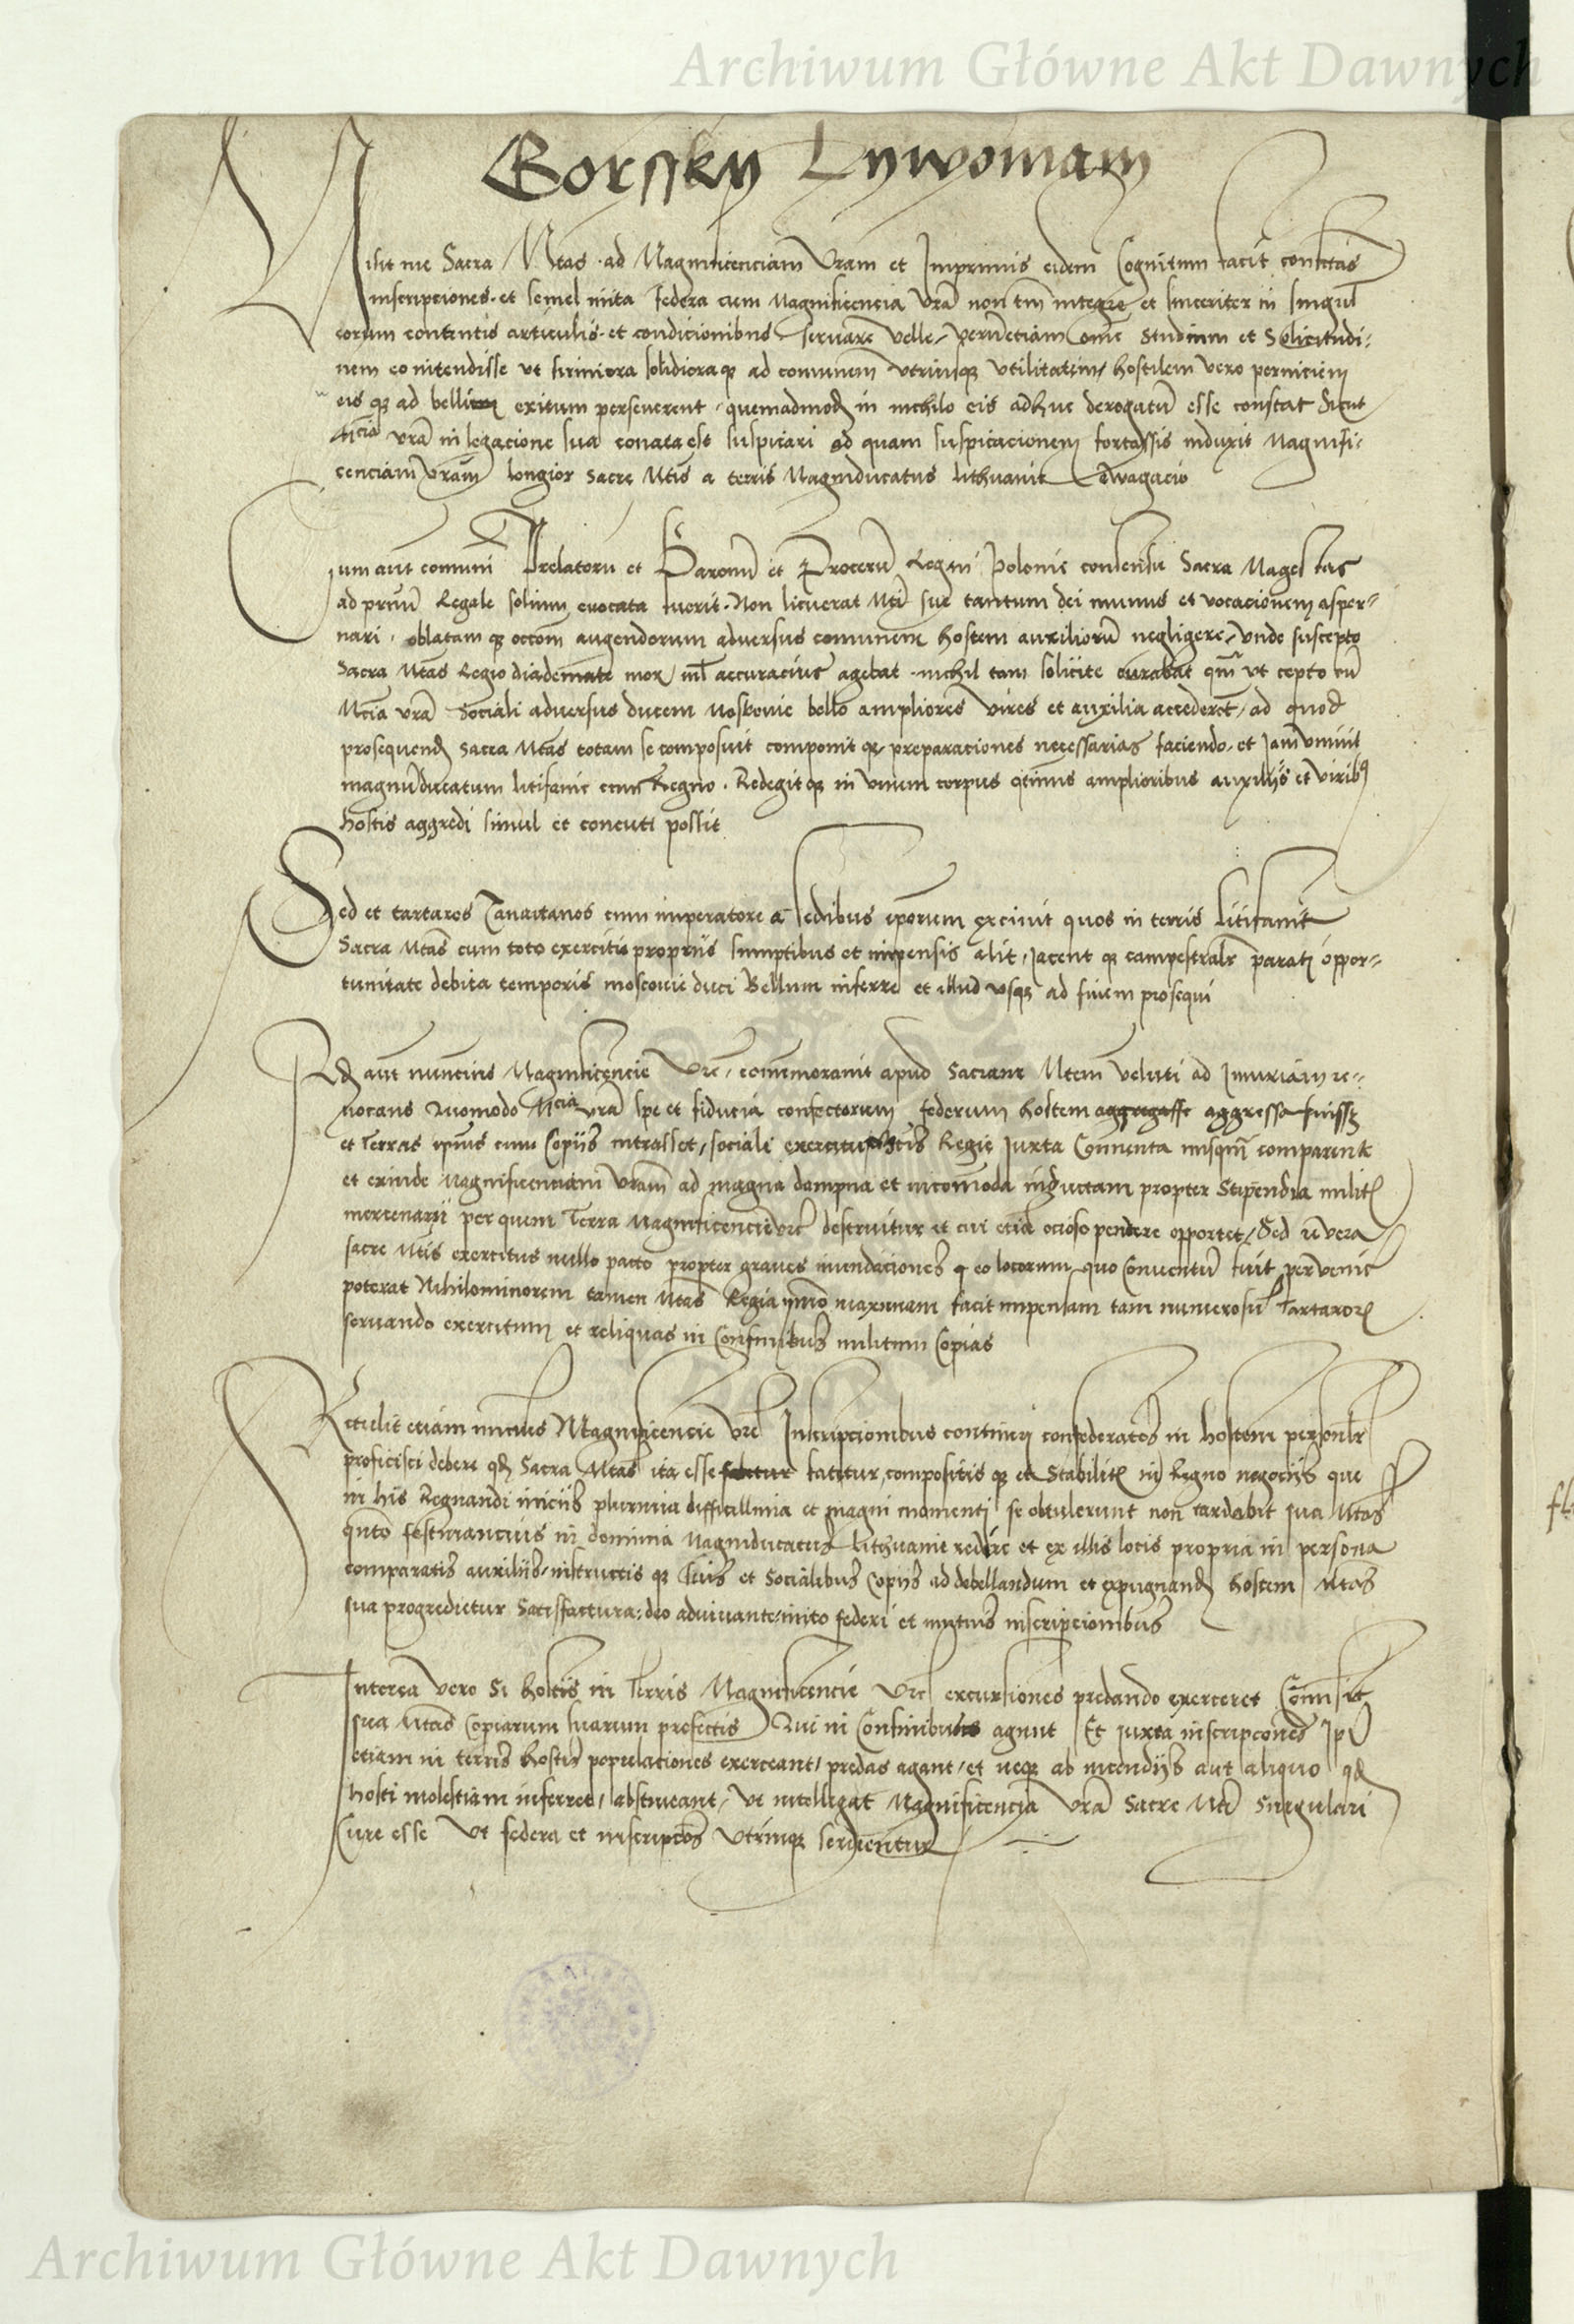 Archiwum Główne Akt Dawnych
Borssky Lywoniam
Misit me Sacra Mtas ad Magnificenciam Vram et Inprimis eidem Cognitum facit confectas
inscripciones et semel inita federa cum Magnificencia Vra non tm integre et sinceriter in singul
eorum contentis articulis et condicionibus servare velle, verumetiam ome studium et Solicitudi-
nem eo intendisse ut firmiora solidioraq ad comunem utriusq utilitatem, hostilem vero perniciem
eisq ad bellicum exitum perseverent, quemadmod in nichilo eis adhuc derogatu esse constat sicut
Mcia vra in legacione sua conata est suspicari ad quam suspicacionem fortassis induxit Magnifi-
cenciam Vram longior sacre Mtis a terris Magniducatus Lithuanie evagacio
Cum aut comuni Prelatoru et Baronu et Proceru Regni Polonie consensu Sacra Magestas
ad primu Regale solium evocata fuerit. Non licuerat Mti sue tantum dei munus et vocacionem asper-
nari, oblatamq occom augendorum adversus comunem hostem auxilioru negligere, unde suscepto
Sacra Mtas Regio diademate mox nil accuracius agebat, nichil tam solicite curabat qm ut cepto cu
Mcia vra Sociali adversus ducem Moskovie bello ampliores vires et auxilia accederet, ad quod
prosequend sacra Mtas totam se composuit componitq, preparaciones necessarias faciendo, et Jam univit
magnuducatum litifanie cum Regno. Redegitq in unum corpus qtinus amplioribus auxiliis et virib
hostis aggredi simul et concuti possit
Sed et tartaros Zanaitanos cum imperatore a sedibus iporum excivit quos in terris litifanie
Sacra Mtas cum toto exercitu propriis sumptibus et impensis alit, Jacentq campestralr parati oppor-
tunitate debita temporis moscovie duci Bellum inferre et illud usq ad finem prosequi
Qd aut nuncius Magnificencie Vre, comemoravit apud Sacram Mtem veluti ad Iniuriam re-
vocans Quomodo Mcia vra spe et fiducia confectorum federum hostem aggregasse aggressa fuisset
et Terras ipius cum Copiis intrasset, sociali exercitu Mtis Regie juxta Conventa nusqm comparente
et exinde Magnificenciam Vram ad magna dampna et incomoda inductam propter Stipendia milit
mercenarii per quem Terra Magnificencie vre destruitur et cui etia ocioso pendere opportet, Sed revera
sacre Mtis exercitus nullo pacto propter graves inundaciones q eo locorum quo Conventu fuit pervenire
poterat Nihilominorem tamen Mtas Regia ymo maximam facit impensam tam numerosu Tartaror
servando exercitum et reliquas in Confinibus militum Copias
Retulit eciam nuncius Magnificencie vre Inscripcionibus contineri confederatos in hostem personlr
proficisci debere qd Sacra Mtas ita esse fatetur fatetur, compositisq et Stabilit in Regno negociis que
in his Regnandi iniciis plurima difficillima et magni momenti se obtulerunt non tardabit sua Mtas
qnto festinancius in dominia Magniducatus Lithuanie redire et ex illis locis propria in persona
comparatis auxiliis, instructisq suis et Socialibus Copiis ad debellandum et expugnand hostem Mtas
sua progredietur Satisfactura, deo adiuvante, inito federi et mutuis inscripcionibus
Interea vero Si hostis in Terris Magnificencie Vre excursiones predando exerceret Comisit
sua Mtas Copiarum suarum prefectis Qui in Confinibus agunt Et juxta inscripcones Ipi
etiam in terris hostis populaciones exerceant, predas agant, et neq ab incendiis aut aliquo qd
hosti molestiam inferret, abstineant, Ut intelligat Magnificencia Vra Sacre Mti Singulari
Cure esse Ut federa et inscripcos Utrinq serventur
Archiwum Główne Akt Dawnych